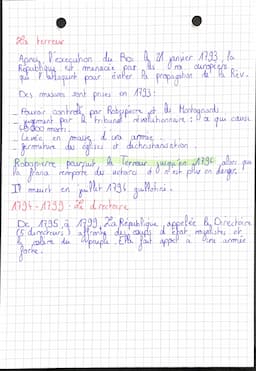 La terreur
Après, l'execution du Roi le 21 janvier 1793, la
République est menacée par les rois européens,
qui l'attaquent pour éviter la propagation de la Rev.
Des mesures sont prises en 1793:
- Pouvoir contrôlé par Robespierre et les Montagnards
- jugement par le tribunal révolutionnaire : ce qui cause
morts.
- Levée en masse d'une armée.
- fermeture des églises et dechristianisation.
Robespierre poursuit la Terreur jusqu'en 1794 alors que
la france remporte des victoires et n'est plus en danger.
Il meurt en juillet 1794 guillotiné.
1794-1799 : Le directoire
De 1795 à 1799, La République, appelée le Directoire
(5 directeurs) affronte des coups d'état royalistes et
la colère du peuple. Elle fait appel à une armée
forte.